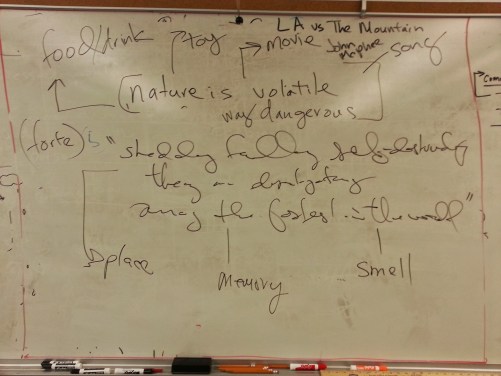 LA vs The Mountain
food/drink toy movie John McPhee song
nature is volatile
way dangerous
(forte)'s "shedding, falling, self-destructing
they are disintegrating
among the fastest in the world"
place memory smell
Com